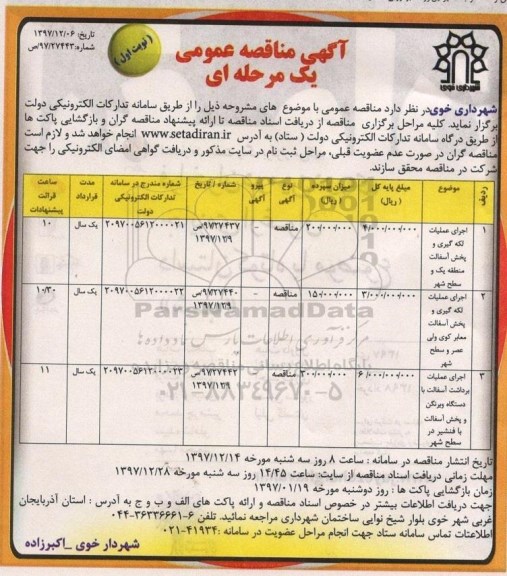 تاریخ: ۱۳۹۷/۱۲/۰۶
شماره: ۹۷/۲۷۴۴۳/ص
(نوبت اول)
آگهی مناقصه عمومی
یک مرحله ای
شهرداری خوی
شهرداری خوی در نظر دارد مناقصه عمومی با موضوع های مشروحه ذیل را از طریق سامانه تدارکات الکترونیکی دولت
برگزار نماید. کلیه مراحل برگزاری مناقصه از دریافت اسناد مناقصه تا ارائه پیشنهاد مناقصه گران و بازگشایی پاکت ها
از طریق درگاه سامانه تدارکات الکترونیکی دولت ( ستاد) به آدرس www.setadiran.ir انجام خواهد شد و لازم است
مناقصه گران در صورت عدم عضویت قبلی، مراحل ثبت نام در سایت مذکور و دریافت گواهی امضای الکترونیکی را جهت
شرکت در مناقصه محقق سازند.
ردیف | موضوع | مبلغ پایه کل ( ریال) | میزان سپرده (ریال) | نوع آگهی | پیرو آگهی | شماره / تاریخ | شماره مندرج در سامانه تدارکات الکترونیکی دولت | مدت قرارداد | ساعت قرائت پیشنهادات
۱ | اجرای عملیات لکه گیری و پخش آسفالت منطقه یک و سطح شهر | ۴/۰۰۰/۰۰۰/۰۰۰ | ۲۰۰/۰۰۰/۰۰۰ | مناقصه | - | ۹۷/۲۷۴۳۷/ص ۱۳۹۷/۱۲/۹ | ۲۰۹۷۰۰۵۶۱۲۰۰۰۰۲۱ | یک سال | ۱۰
۲ | اجرای عملیات لکه گیری و پخش آسفالت معابر کوی ولی عصر و سطح شهر | ۳/۰۰۰/۰۰۰/۰۰۰ | ۱۵۰/۰۰۰/۰۰۰ | مناقصه | - | ۹۷/۲۷۴۴۰/ص ۱۳۹۷/۱۲/۹ | ۲۰۹۷۰۰۵۶۱۲۰۰۰۰۲۲ | یک سال | ۱۰/۳۰
۳ | اجرای عملیات برداشت آسفالت با دستگاه ویرتگن و پخش آسفالت با فنیشر در سطح شهر | ۶/۰۰۰/۰۰۰/۰۰۰ | ۳۰۰/۰۰۰/۰۰۰ | مناقصه | - | ۹۷/۲۷۴۴۲/ص ۱۳۹۷/۱۲/۹ | ۲۰۹۷۰۰۵۶۱۲۰۰۰۰۲۳ | یک سال | ۱۱
ParsNamadData
۰۲۱-۸۸۳۴۹۶۷۰-۵
تاریخ انتشار مناقصه در سامانه : ساعت ۸ روز سه شنبه مورخه ۱۳۹۷/۱۲/۱۴
مهلت زمانی دریافت اسناد مناقصه از سایت: ساعت ۱۴/۴۵ روز سه شنبه مورخه ۱۳۹۷/۱۲/۲۸
زمان بازگشایی پاکت ها : روز دوشنبه مورخه ۱۳۹۷/۰۱/۱۹
جهت دریافت اطلاعات بیشتر در خصوص اسناد مناقصه و ارائه پاکت های الف و ب و ج به آدرس : استان آذربایجان
غربی شهر خوی بلوار شیخ نوایی ساختمان شهرداری مراجعه نمائید. تلفن ۶-۳۶۳۳۶۶۶۱-۰۴۴
اطلاعات تماس سامانه ستاد جهت انجام مراحل عضویت در سامانه : ۴۱۹۳۴-۰۲۱
شهردار خوی _اکبرزاده